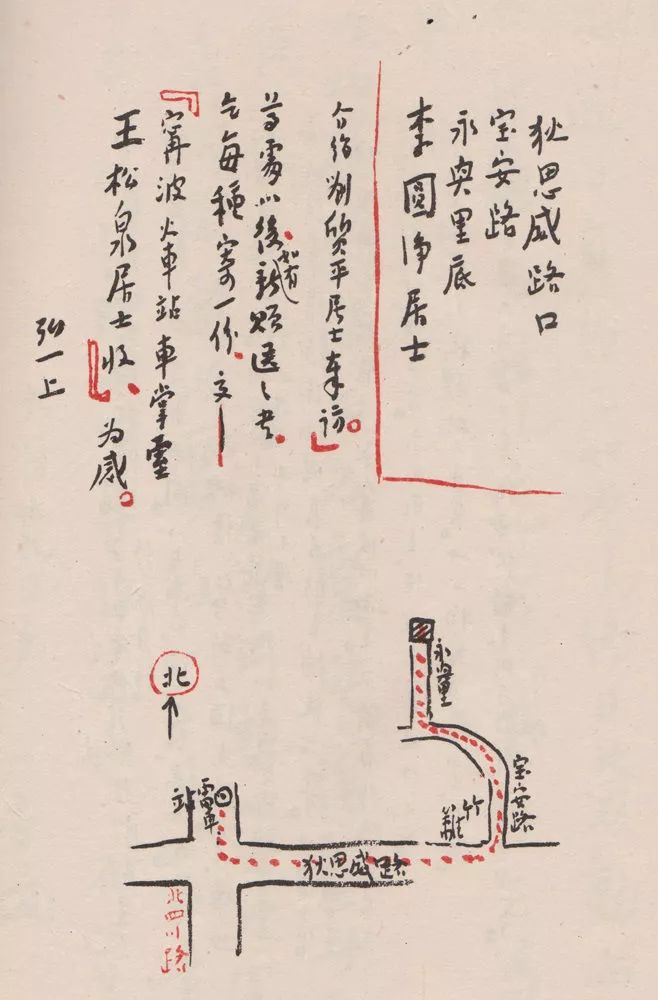 狄思威路口
宝安路
永興里底
李圓净居士
介绍刘質平居士奉訪。
尊處以後如有新贈送之书
乞每種寄一份交
『寧波火車站車掌處
王松泉居士收』为感。
弘一上
北
永興里
宝安路
竹籬
電車站
狄思威路
北四川路